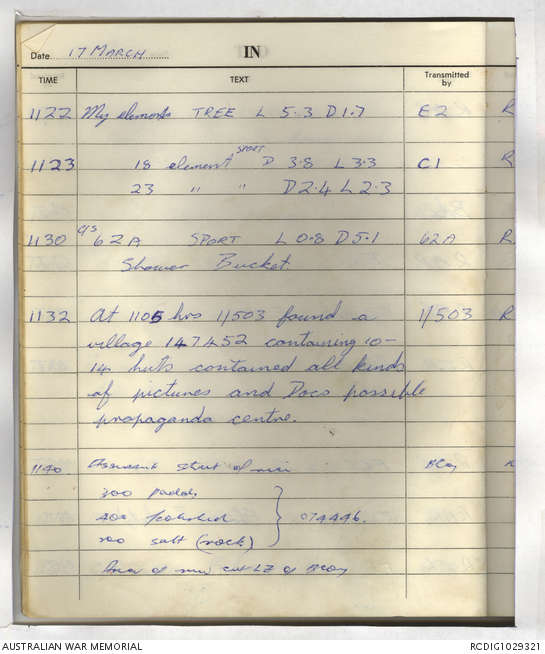 Date 17 MARCH IN
TIME TEXT Transmitted by
1122 My elements TREE L 5.3 D 1.7 E2 R
1123 18 element SPORT D 3.8 L 3.3 C1 R
23 " " D 2.4 L 2.3
1130 C/S 62A SPORT L 0.8 D 5.1 62A R
Shower Bucket.
1132 At 1105 hrs 1/503 found a 1/503 R
village 147452 containing 10-
14 huts contained all kinds
of pictures and Docs possible
propaganda centre.
1140 B Coy
300
400 polished 074446.
200 salt (rock)
Area of new cut LZ of B Coy
AUSTRALIAN WAR MEMORIAL RCDIG1029321